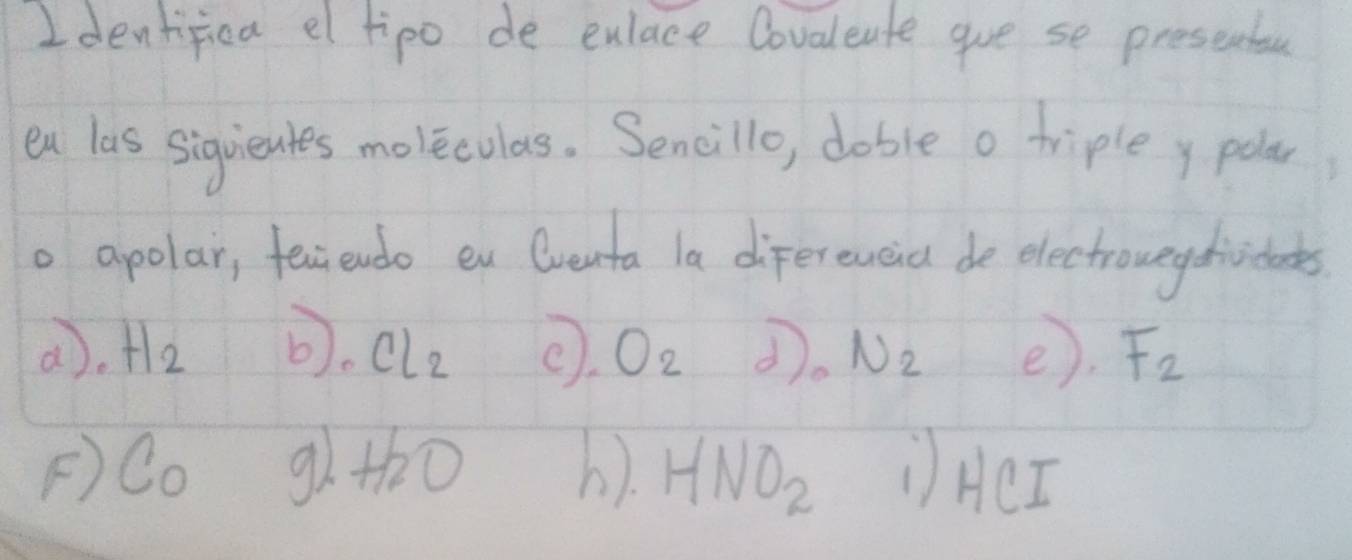 Identifica el tipo de enlace Covalente que se presentan
en las siguientes moléculas. Sencillo, doble o triple y polar,
o apolar, teniendo en Cuenta la diferencia de electronegatividades.
a). H2 b). Cl2 c). O2 d). N2 e). F2
F) Co g). H2O h). HNO2 i) HCI